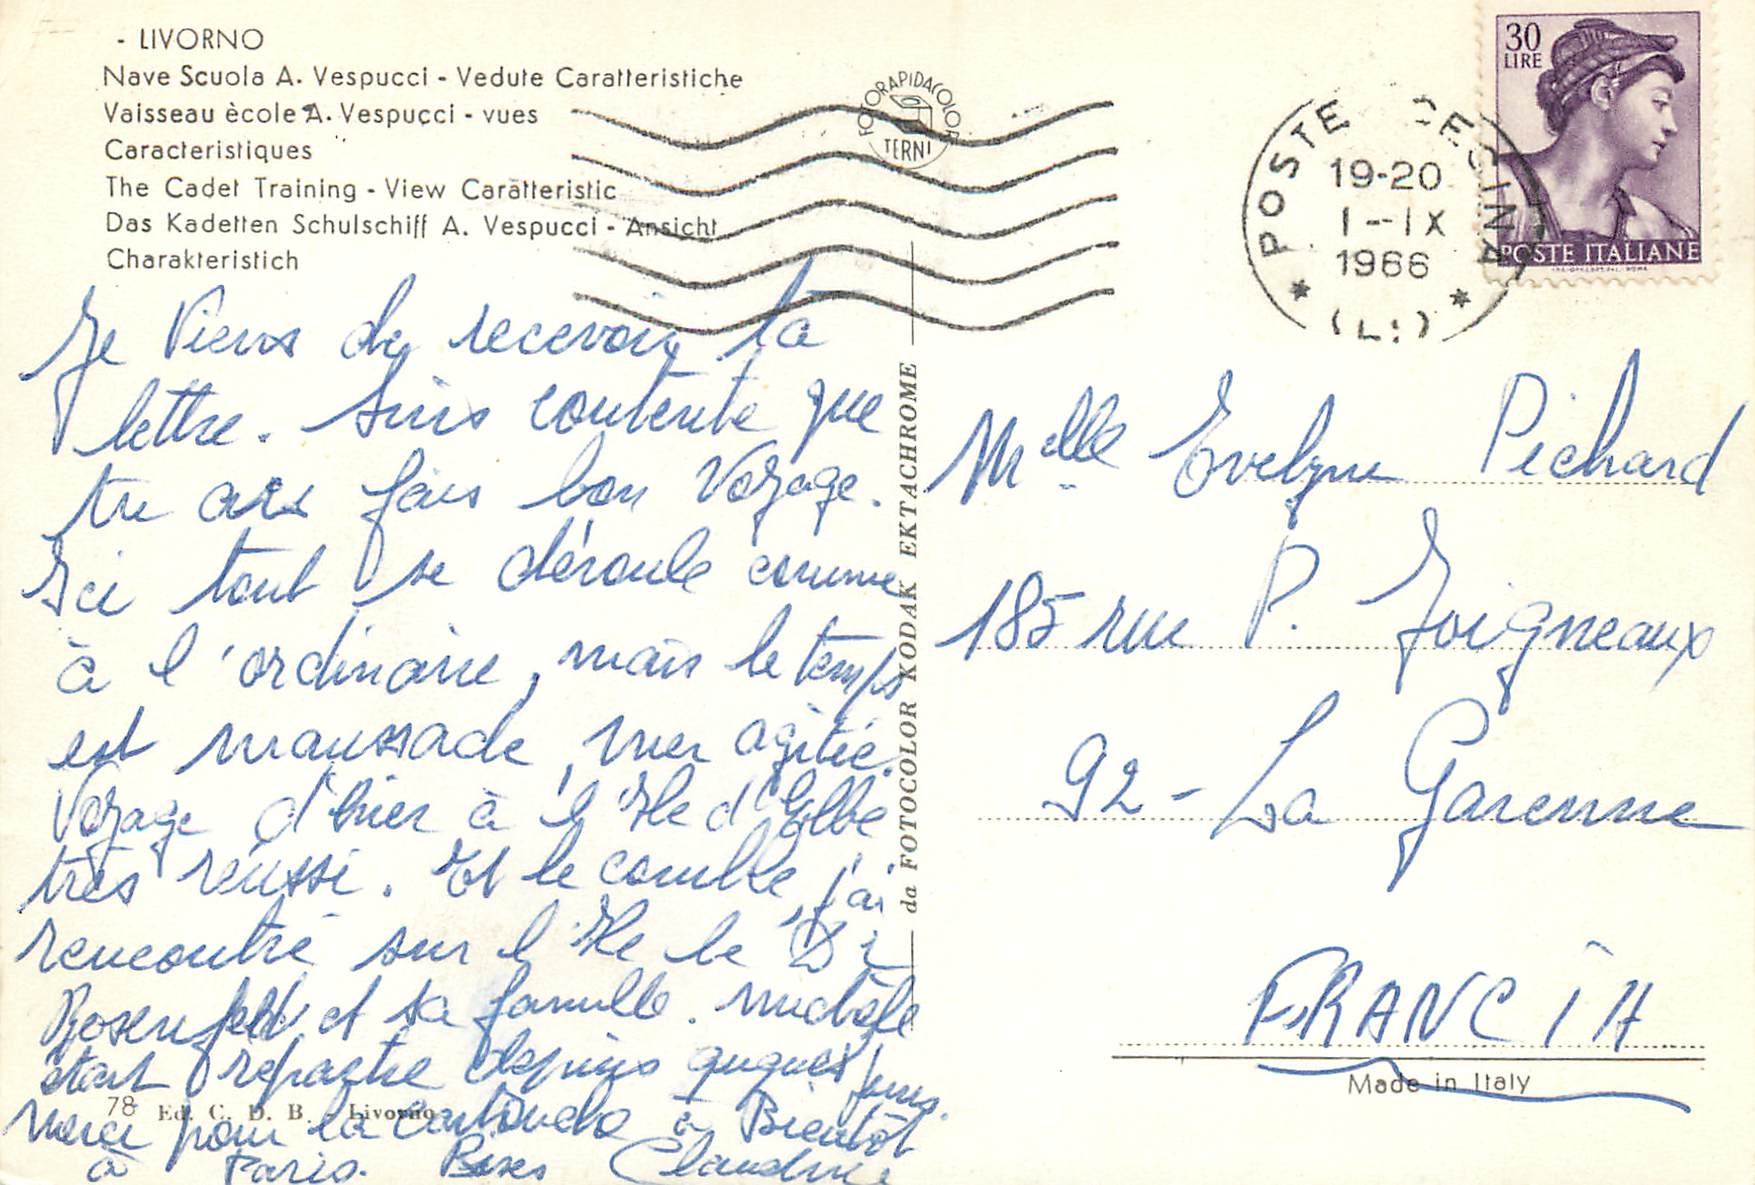 - LIVORNO
Nave Scuola A. Vespucci - Vedute Caratteristiche
Vaisseau ècole A. Vespucci - vues
Caracteristiques
The Cadet Training - View Caratteristic
Das Kadetten Schulschiff A. Vespucci - Ansicht
Charakteristich
FOTORAPIDACOLOR
TERNI
POSTE
19-20
1-IX
1966
(L:)
30
LIRE
POSTE ITALIANE
Je Viens de recevoir ta
lettre. Suis contente que
tu aies fais bon Voyage.
Ici tout se déroule comme
à l'ordinaire, mais le temps
est maussade, mer agitée.
Voyage d'hier à l'Ile d'Elbe
très réussi. Et le comble, j'ai
rencontré sur l'Ile le Dr
Rosenfeld et sa famille. Michèle
était repartie depuis quques jours.
Merci pour la cartouche à Bientôt
à Paris. Bises Claudine
78 Ed. C. D. B. - Livorno
da FOTOCOLOR KODAK EKTACHROME
Melle Evelyne Pichard
185 rue P. Joigneaux
92 - La Garenne
FRANCIA
Made in Italy